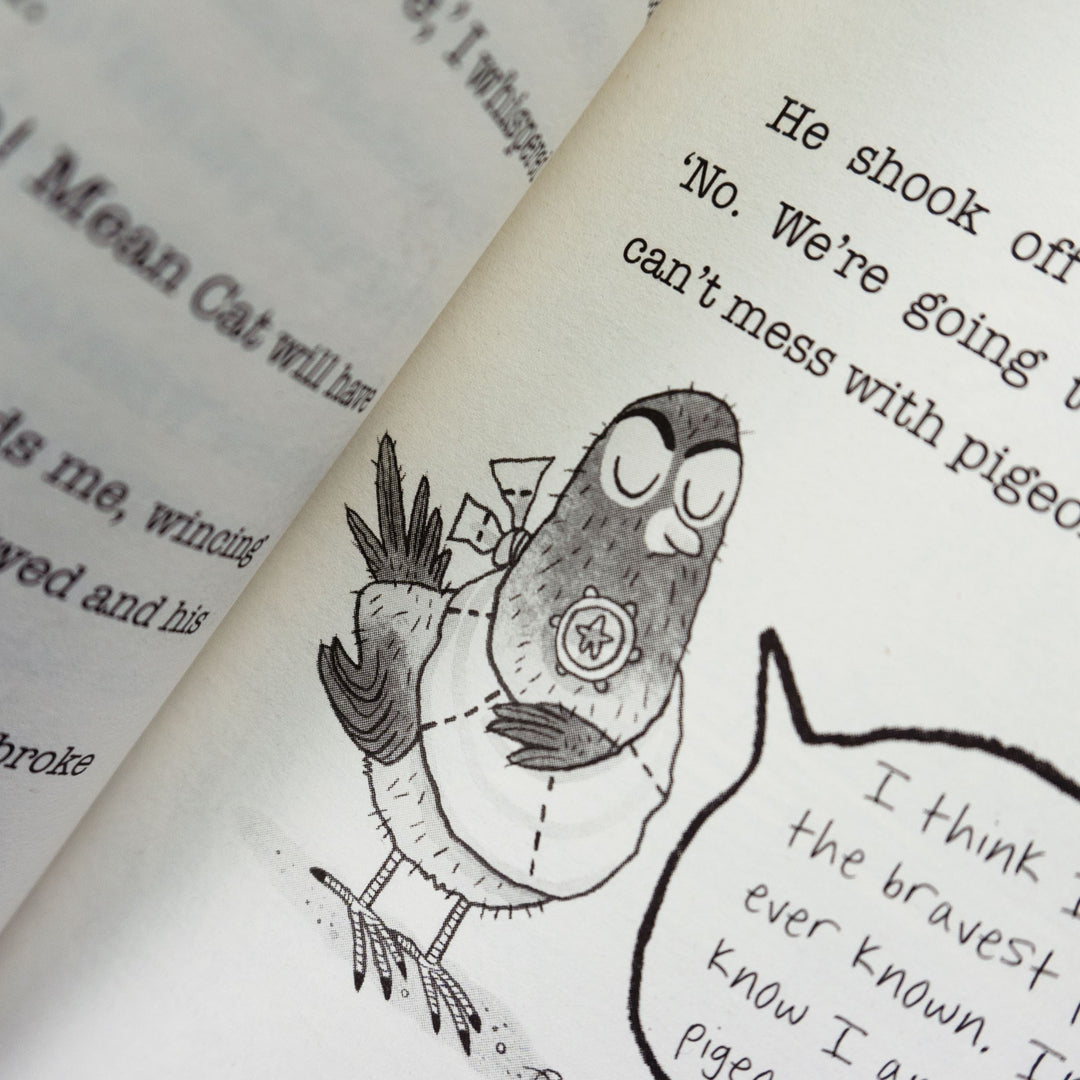 ,' I whispered
! Mean Cat will have
me, wincing
and his
broke
He shook off
'No. We're going
can't mess with
I think
the bravest
ever known.
know I